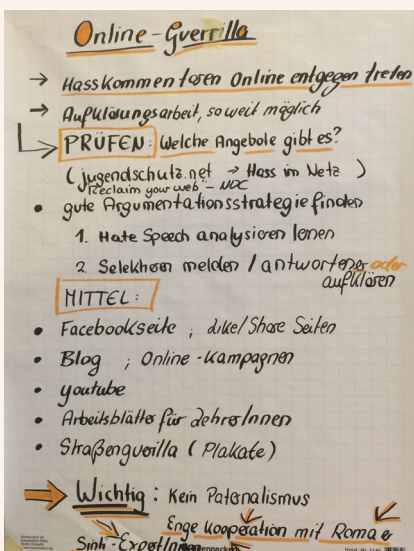 Online-Guerrilla
→ Hasskommentaren Online entgegen treten
→ Aufklärungsarbeit, soweit möglich
PRÜFEN: Welche Angebote gibt es?
(jugendschutz.net → Hass im Netz)
"Reclaim your web" - NDC
• gute Argumentationsstrategie finden
1. Hate Speech analysieren lernen
2. Selektieren melden / antworten oder
aufklären
MITTEL:
• Facebookseite, Like/Share Seiten
• Blog; Online-Kampagnen
• youtube
• Arbeitsblätter für LehrerInnen
• Straßenguerilla (Plakate)
→ Wichtig: Kein Paternalismus
Enge Kooperation mit Roma &
Sinti-ExpertInnen